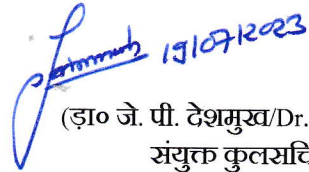 19/07/2023
(ड़ा० जे. पी. देशमुख/Dr.
संयुक्त कुलसचि